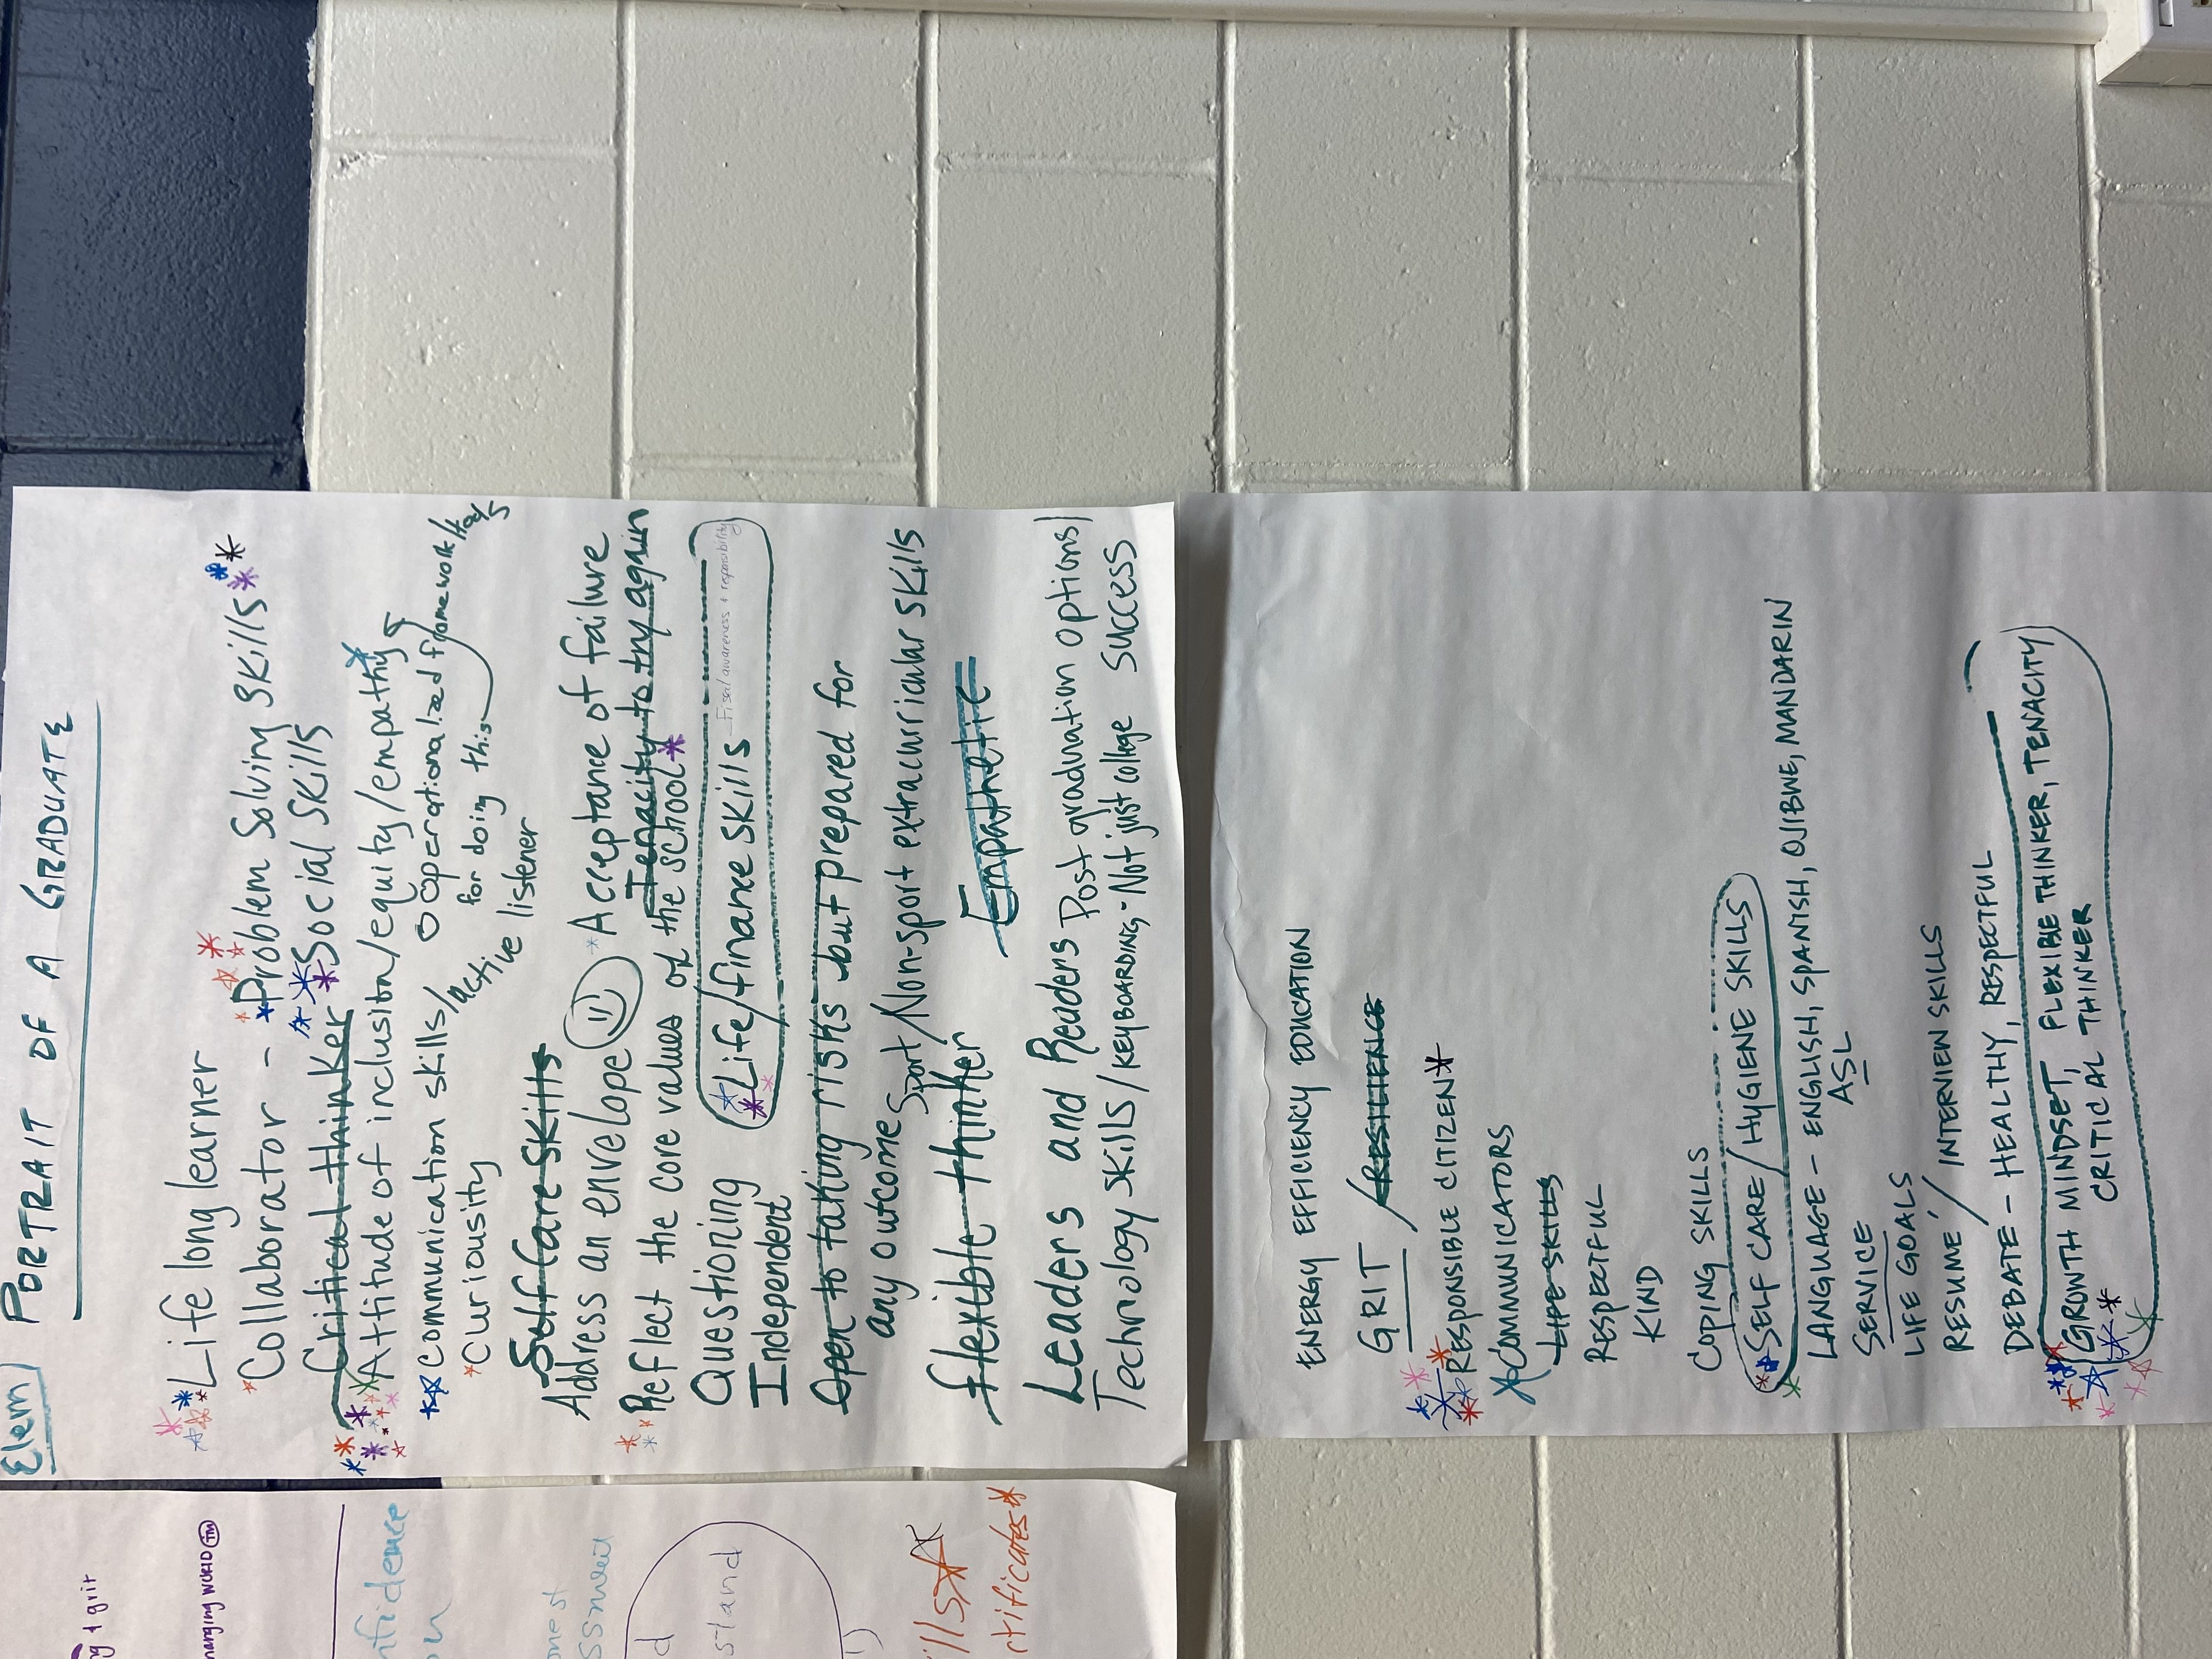 Elem PORTRAIT OF A GRADUATE
Life long learner
Collaborator - Problem Solving Skills
Critical thinker Social Skills
Attitude of inclusion/equity/empathy
Operationalized framework/
for doing this
communication skills/active listener
Curiousity
Self Care Skills
Address an envelope Acceptance of failure
Tenacity to try again
Reflect the core values of the school
Questioning
Life/finance skills - Fiscal awareness + responsibility
Independent
Open to taking risks but prepared for
any outcome
Sport/Non-sport extracurricular skills
flexible thinker Empathetic
Leaders and Readers Post graduation options/
Technology skills/KEYBOARDING - Not just college success
ENERGY EFFICIENCY EDUCATION
GRIT / RESILIENCE
RESPONSIBLE CITIZEN
COMMUNICATORS
LIFE SKILLS
RESPECTFUL
KIND
COPING SKILLS
SELF CARE / HYGIENE SKILLS
LANGUAGE - ENGLISH, SPANISH, OJIBWE, MANDARIN
ASL
SERVICE
LIFE GOALS
RESUMÉ / INTERVIEW SKILLS
DEBATE - HEALTHY, RESPECTFUL
GROWTH MINDSET, FLEXIBLE THINKER, TENACITY
CRITICAL THINKER
+ grit
WORLD TM
stand